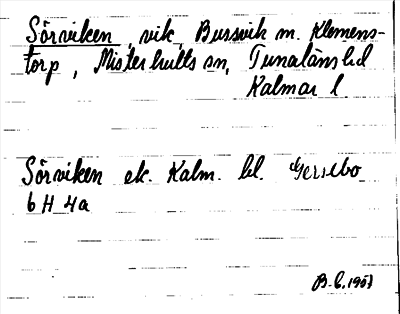 Sörviken, vik, Bussvik m. Klemens-
torp, Misterhults sn, Tunaläns hd
Kalmar l.
Sörviken ek. Kalm. bl. Gersebo
6 H 4a